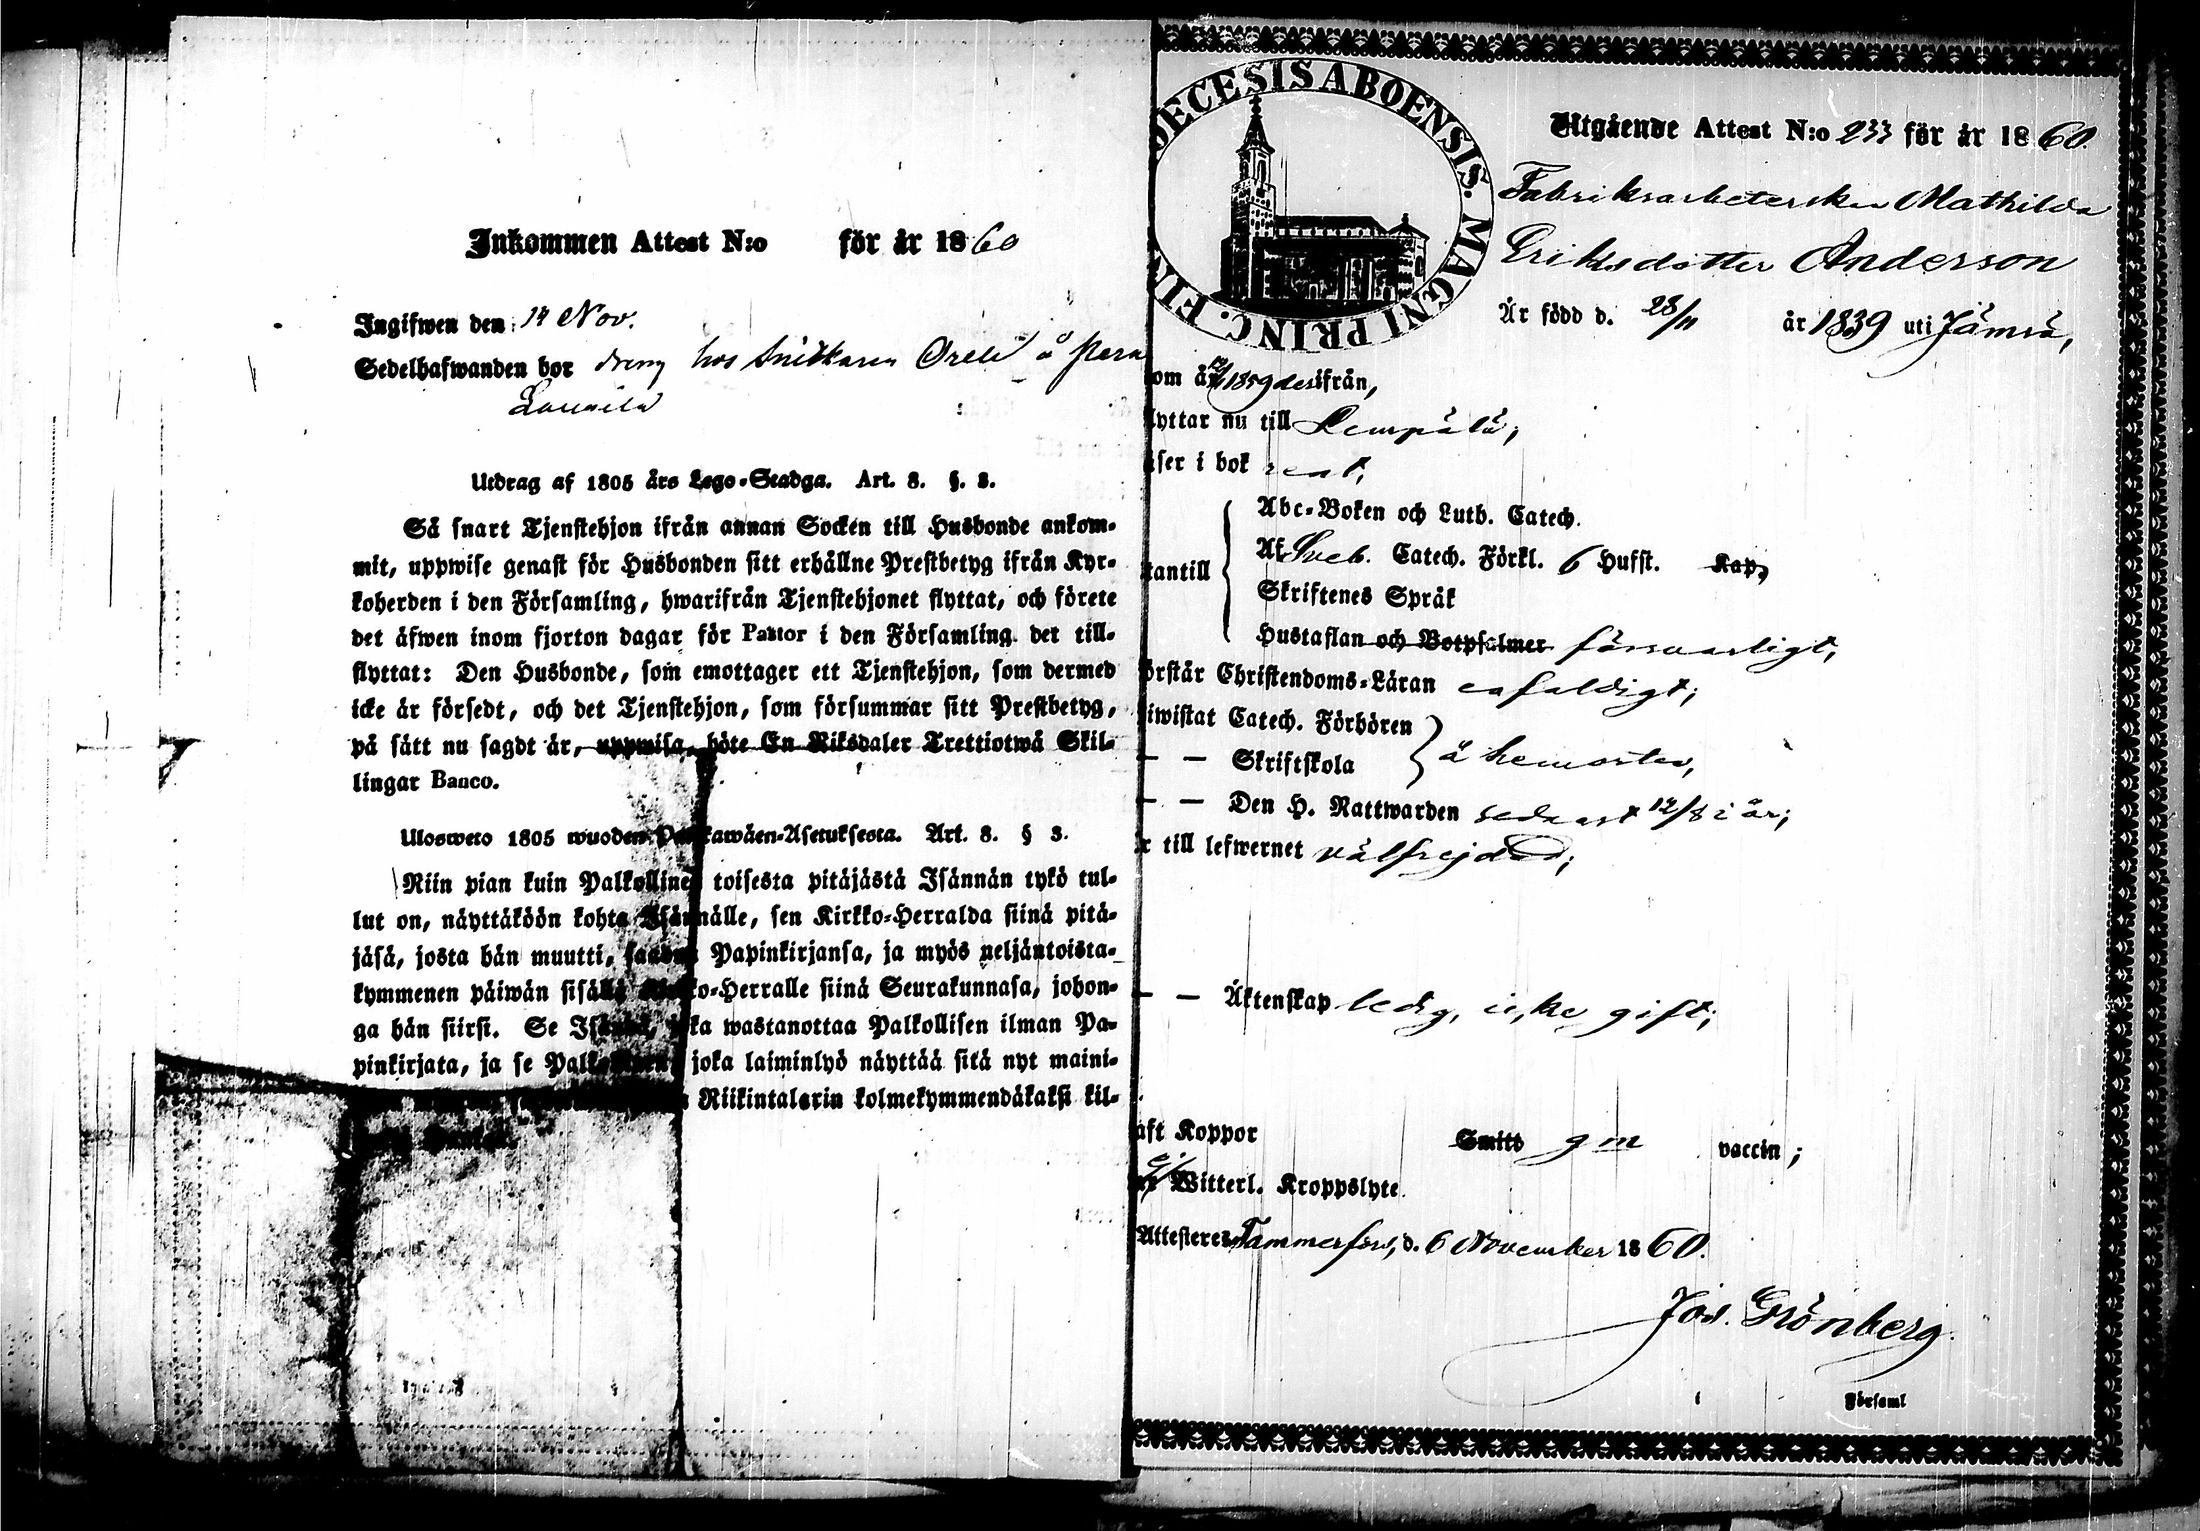 Inkommen Attest N:o för år 1860
Ingifwen den 14 Nov.
Sedelhafwanden bor dreng hos Snickaren å
Utdrag af 1805 års Lego-Stadga. Art. 8. §. 3.
Så snart Tjenstehjon ifrån annan Socken till Husbonde ankom-
mit, uppwise genast för Husbonden sitt erhållne Prestbetyg ifrån Kyr-
koherden i den Församling, hwarifrån Tjenstehjonet flyttat, och förete
det äfwen inom fjorton dagar för Pastor i den Församling det till-
flyttat: Den Husbonde, som emottager ett Tjenstehjon, som dermed
icke är försedt, och det Tjenstehjon, som försummar sitt Prestbetyg,
på sätt nu sagdt är, uppwisa, böte En Riksdaler Trettiotwå Skil-
lingar Banco.
Ulosweto 1805 wuoden Art. 8. § 3.
Niin pian kuin Palkollinen toisesta pitäjästä Isännän tykö tul-
lut on, näyttäköön kohta Isännälle, sen Kirkko-Herralda siinä pitä-
jäsä, josta hän muutti, saadun Papinkirjansa, ja myös neljäntoista-
kymmenen päiwän sisällä Kirkko-Herralle siinä Seurakunnasa, johon-
ga hän siirsi. Se Isändä, joka wastanottaa Palkollisen ilman Pa-
pinkirjata, ja se Palkollinen joka laiminlyö näyttää sitä nyt maini-
Riikintalarin kolmekymmendäkaksi kil-
DECESIS ABOENSIS. MAGNI PRINC. FIN
Utgående Attest N:o 233 för år 1860.
Fabriksarbeterskan Mathilda
Eriksdotter Anderson
Är född d. 28/11 år 1839 uti Jämsä,
om år 1859 derifrån,
lyttar nu till Lempälä;
äser i bok rent,
tantill
Abc-Boken och Luth. Catech.
Af Sveb. Catech. Förkl. 6 Hufst. Kap,
Skriftenes Språk
Hustaflan och Botpsalmer försvarligt,
örstår Christendoms-Läran enfaldigt;
iwistat Catech. Förhören
— — Skriftskola å hemorten,
— — Den H. Nattwarden sednast 12/8 i år;
r till lefwernet välfrejdad;
— — Äktenskap ledig, icke gift;
aft Koppor Smitt gm vaccin;
ej Witterl. Kroppslyte
Attesteres Tammerfors, d. 6 November 1860.
Jos. Grönberg.
Församl